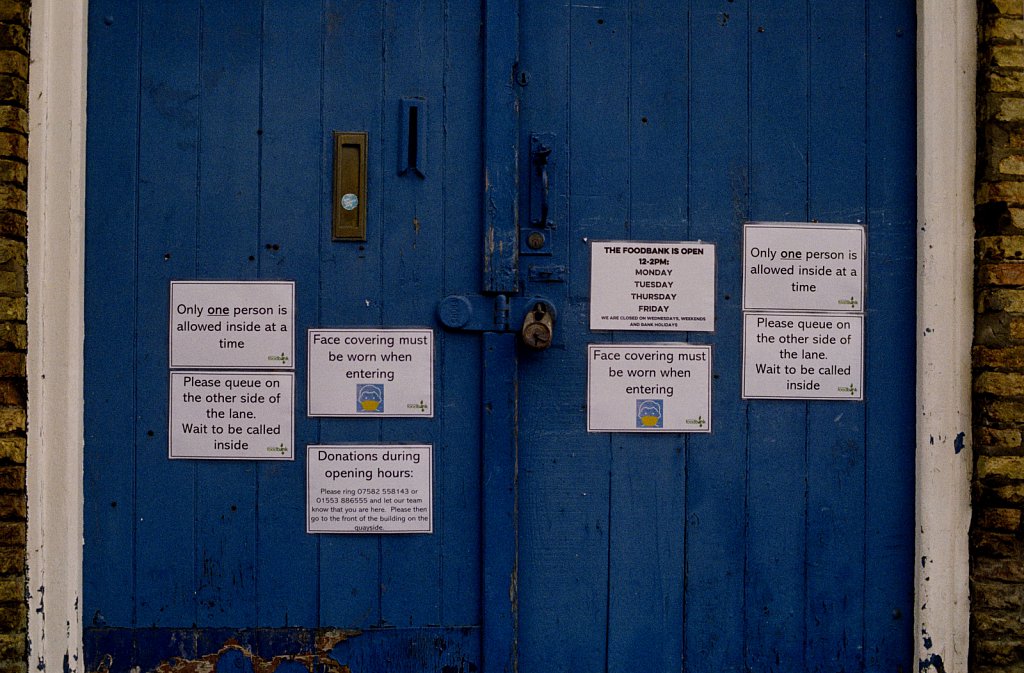 Only one person is
allowed inside at a
time
foodbank
Please queue on
the other side of
the lane.
Wait to be called
inside
foodbank
Face covering must
be worn when
entering
foodbank
Donations during
opening hours:
Please ring 07582 558143 or
01553 886555 and let our team
know that you are here. Please then
go to the front of the building on the
quayside.
THE FOODBANK IS OPEN
12-2PM:
MONDAY
TUESDAY
THURSDAY
FRIDAY
WE ARE CLOSED ON WEDNESDAYS, WEEKENDS
AND BANK HOLIDAYS
Face covering must
be worn when
entering
foodbank
Only one person is
allowed inside at a
time
foodbank
Please queue on
the other side of
the lane.
Wait to be called
inside
foodbank